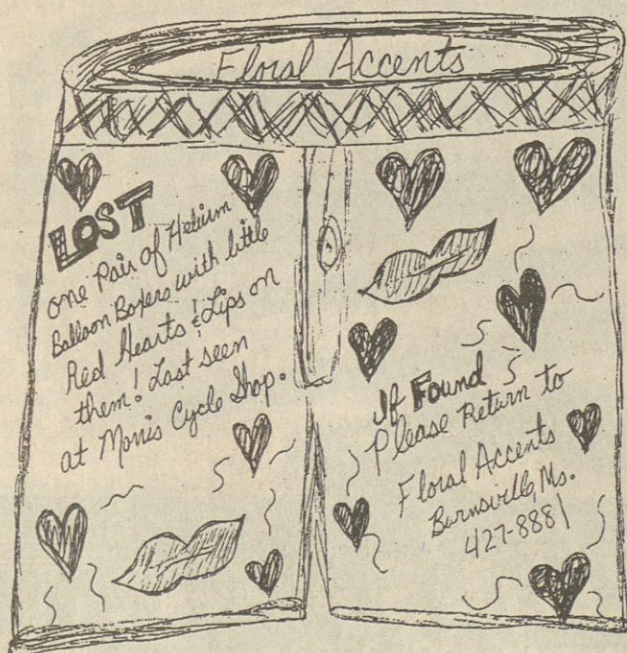 Floral Accents
LOST
one Pair of Helium
Balloon Boxers with little
Red Hearts & Lips on
them! Last seen
at Morris Cycle Shop.
If Found
Please Return to
Floral Accents
Burnsville, Ms.
427-8881